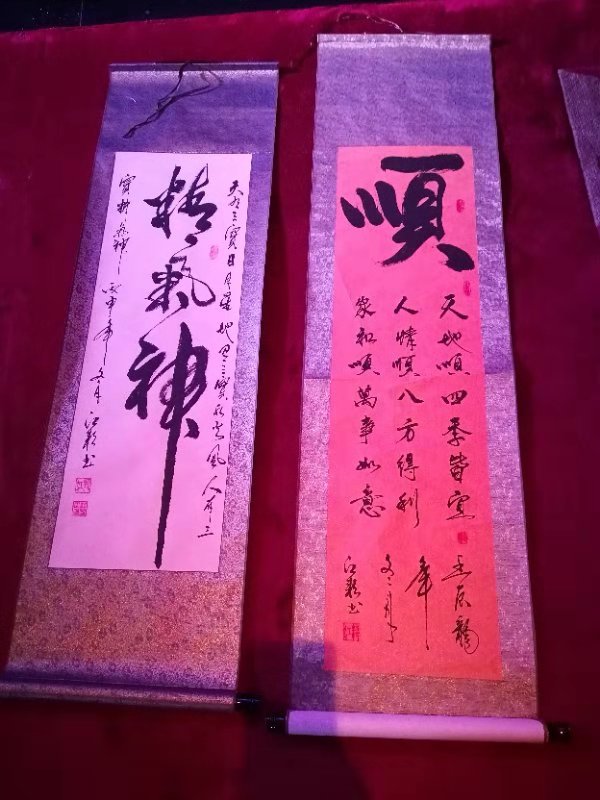 精氣神
天有三寶日月星地有三寶水火風人有三
寶精氣神
丙申年冬月
順
天地順四季皆宜
人情順八方得利
家和順萬事如意
壬辰龍
年